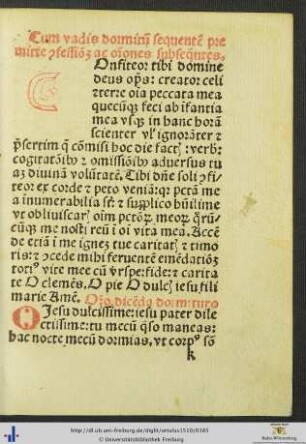 Cum vadis dormitū sequentē pre
mitte ꝯfessionē ac orōnes subseq̄ntes.
COnfiteor tibi domine
deus oꝑs: creator celi
⁊ terre oīa peccata mea
quecūqꝫ feci ab īfantia
mea vsqꝫ in hanc horā
scienter vl' ignorāter ⁊
p̄sertim q̄ cōmisi hoc die factꝭ: verbꝭ:
cogitatōibꝰ ⁊ omissiōibꝰ aduersus tu
aꝫ diuinā volūtatē. Tibi dn̄e soli ꝯfi
teor ex corde ⁊ peto veniāꝫ: qꝛ pctā me
a inumerabilia sūt ⁊ supplico hūilime
vt obliuiscarꝭ oīm pctōꝝ meoꝝ q̄ru
cūqꝫ me nosti reū ī oī vita mea. Accē
de etiā ī me ignez tue caritatꝭ ⁊ timo
ris: ⁊ ꝯcede mihi feruentē emēdatōeꝫ
totiꝰ vite mee cū v̄a spe: fide: ⁊ carita
te O clemēs, O pie O dulcꝭ iesu fili
marie Amē. Orō dicēda dormituro
OIesu dulcissime: iesu pater dile
ctissime: tu mecū q̄so maneas:
hac nocte mecū dormias, vt corpꝰ sō
k
http://dl.ub.uni-freiburg.de/diglit/ortulus1510/0165
© Universitätsbibliothek Freiburg